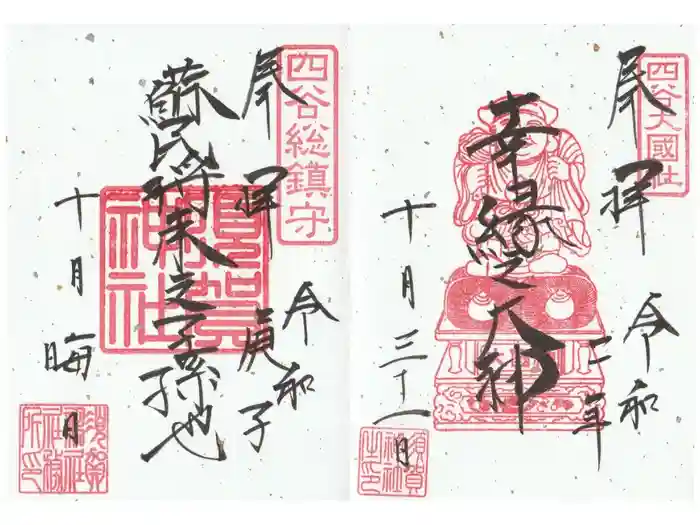 四谷大國社
奉拝
令和二年
幸縁之大神
十月三十一日
須賀神社之印
四谷総鎮守
奉拝
令和庚子
蘇民将来之子孫也
須賀神社
十月晦日
須賀神社社務所印